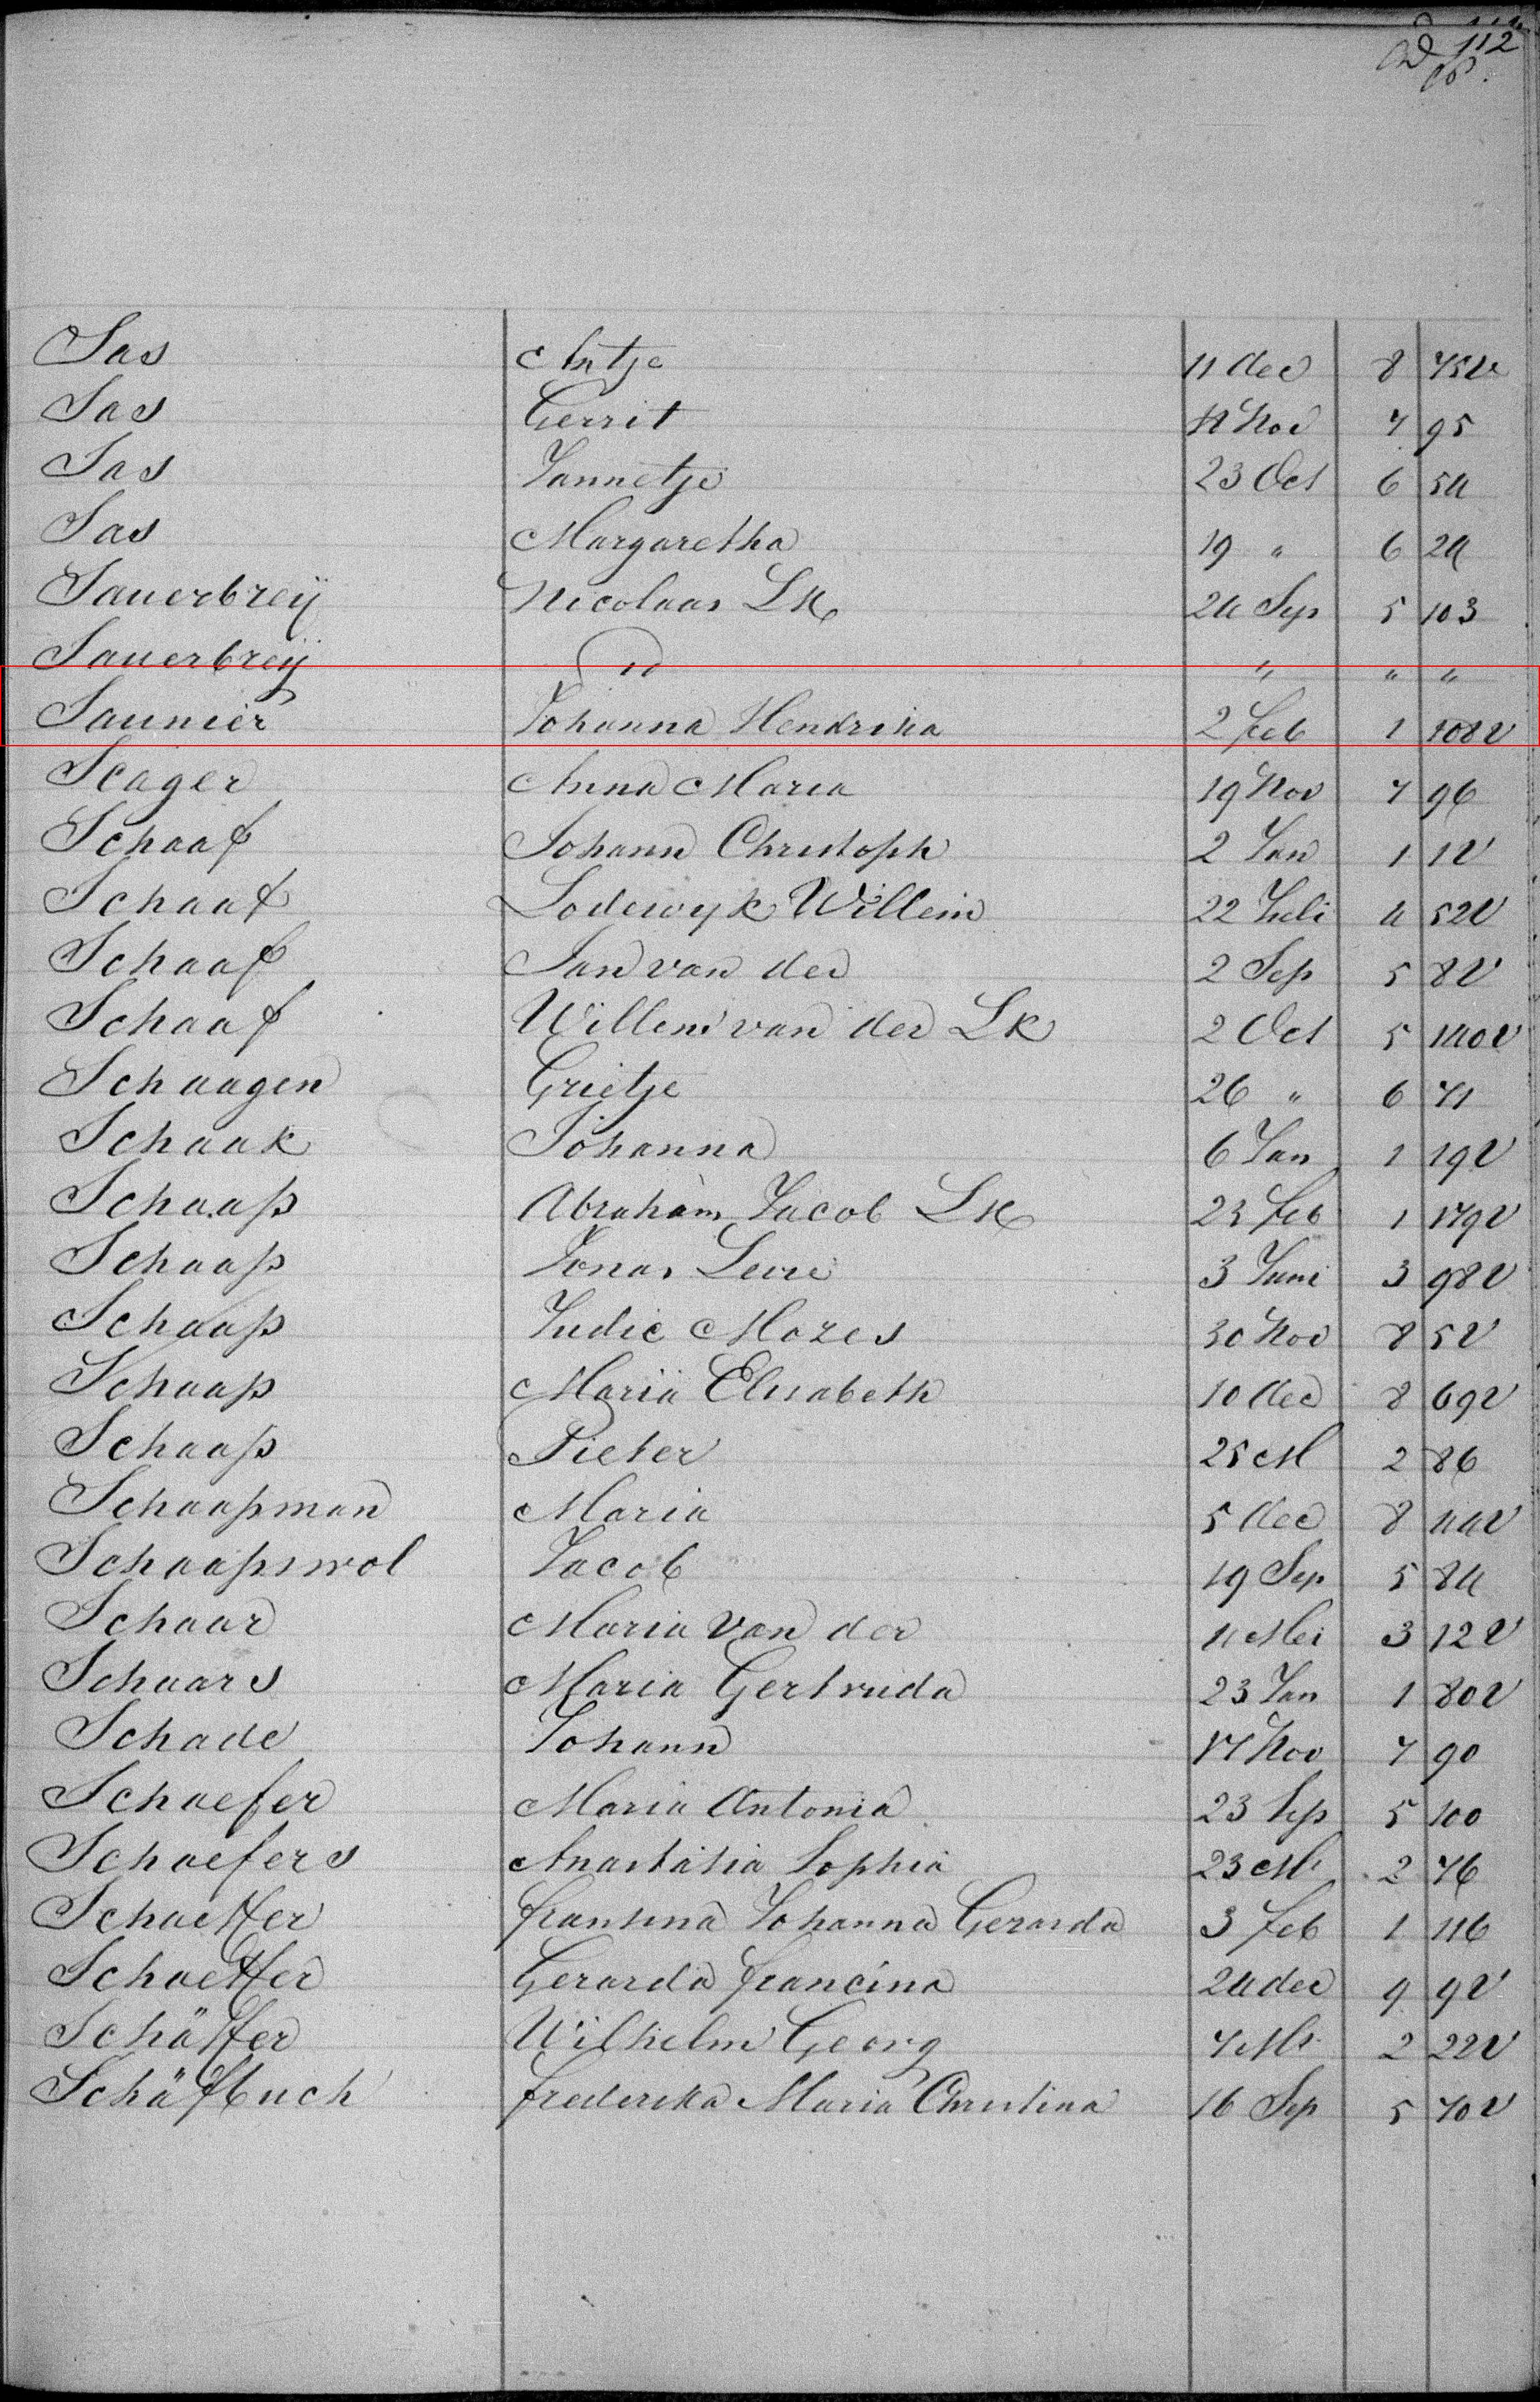 112
Sas Antje 11 dec 8 75v
Sas Gerrit Nov 7 95
Sas Jannetje 23 Oct 6 54
Sas Margaretha 19 " 6 24
Sauerbreÿ Nicolaas LK 24 Sep 5 103
Sauerbreÿ D " " "
Saunier Johanna Hendrika 2 feb 1 108v
Scager Anna Maria 19 Nov 7 96
Schaaf Johann Christoph 2 Jan 1 1v
Schaaf Lodewyk Willem 22 Juli 4 52v
Schaaf Jan van der 2 Sep 5 8v
Schaaf Willem van der LK 2 Oct 5 140v
Schaagen Grietje 26 " 6 71
Schaak Johanna 6 Jan 1 19v
Schaap Abraham Jacob LK 23 feb 1 179v
Schaap Jonas Levie 3 Juni 3 98v
Schaap Judic Mozes 30 Nov 8 5v
Schaap Maria Elisabeth 10 dec 8 69v
Schaap Pieter 25 M 2 86
Schaapman Maria 5 dec 8 44v
Schaapswol Jacob 19 Sep 5 84
Schaar Maria van der 11 Mei 3 12v
Schaars Maria Gertruda 23 Jan 1 80v
Schade Johann 17 Nov 7 90
Schaefer Maria Antonia 23 Sep 5 100
Schaefers Anastasia Sophia 23 Mt 2 76
Schaeffer fransina Johanna Gerarda 3 feb 1 116
Schaeffer Gerarda francina 24 dec 9 9v
Schäffer Wilhelm Georg 7 Mt 2 22v
Schäfbuch frederika Maria Christina 16 Sep 5 70v